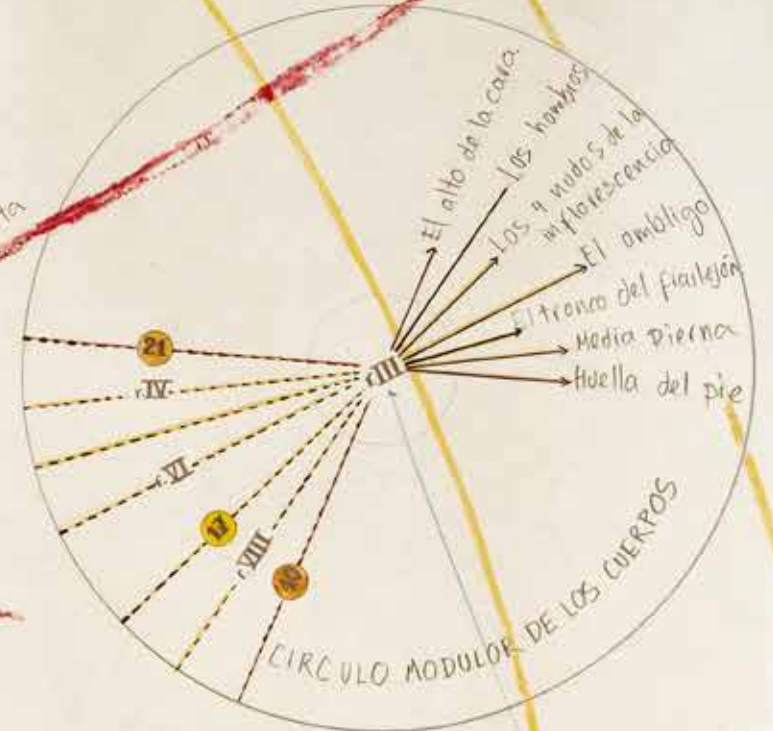 El alto de la cara
Los hombros
Los 4 nudos de la
inflorescencia
El ombligo
El tronco del frailejón
Media pierna
Huella del pie
r.III
21
r.IV
r.VI
17
r.VIII
CIRCULO MODULOR DE LOS CUERPOS